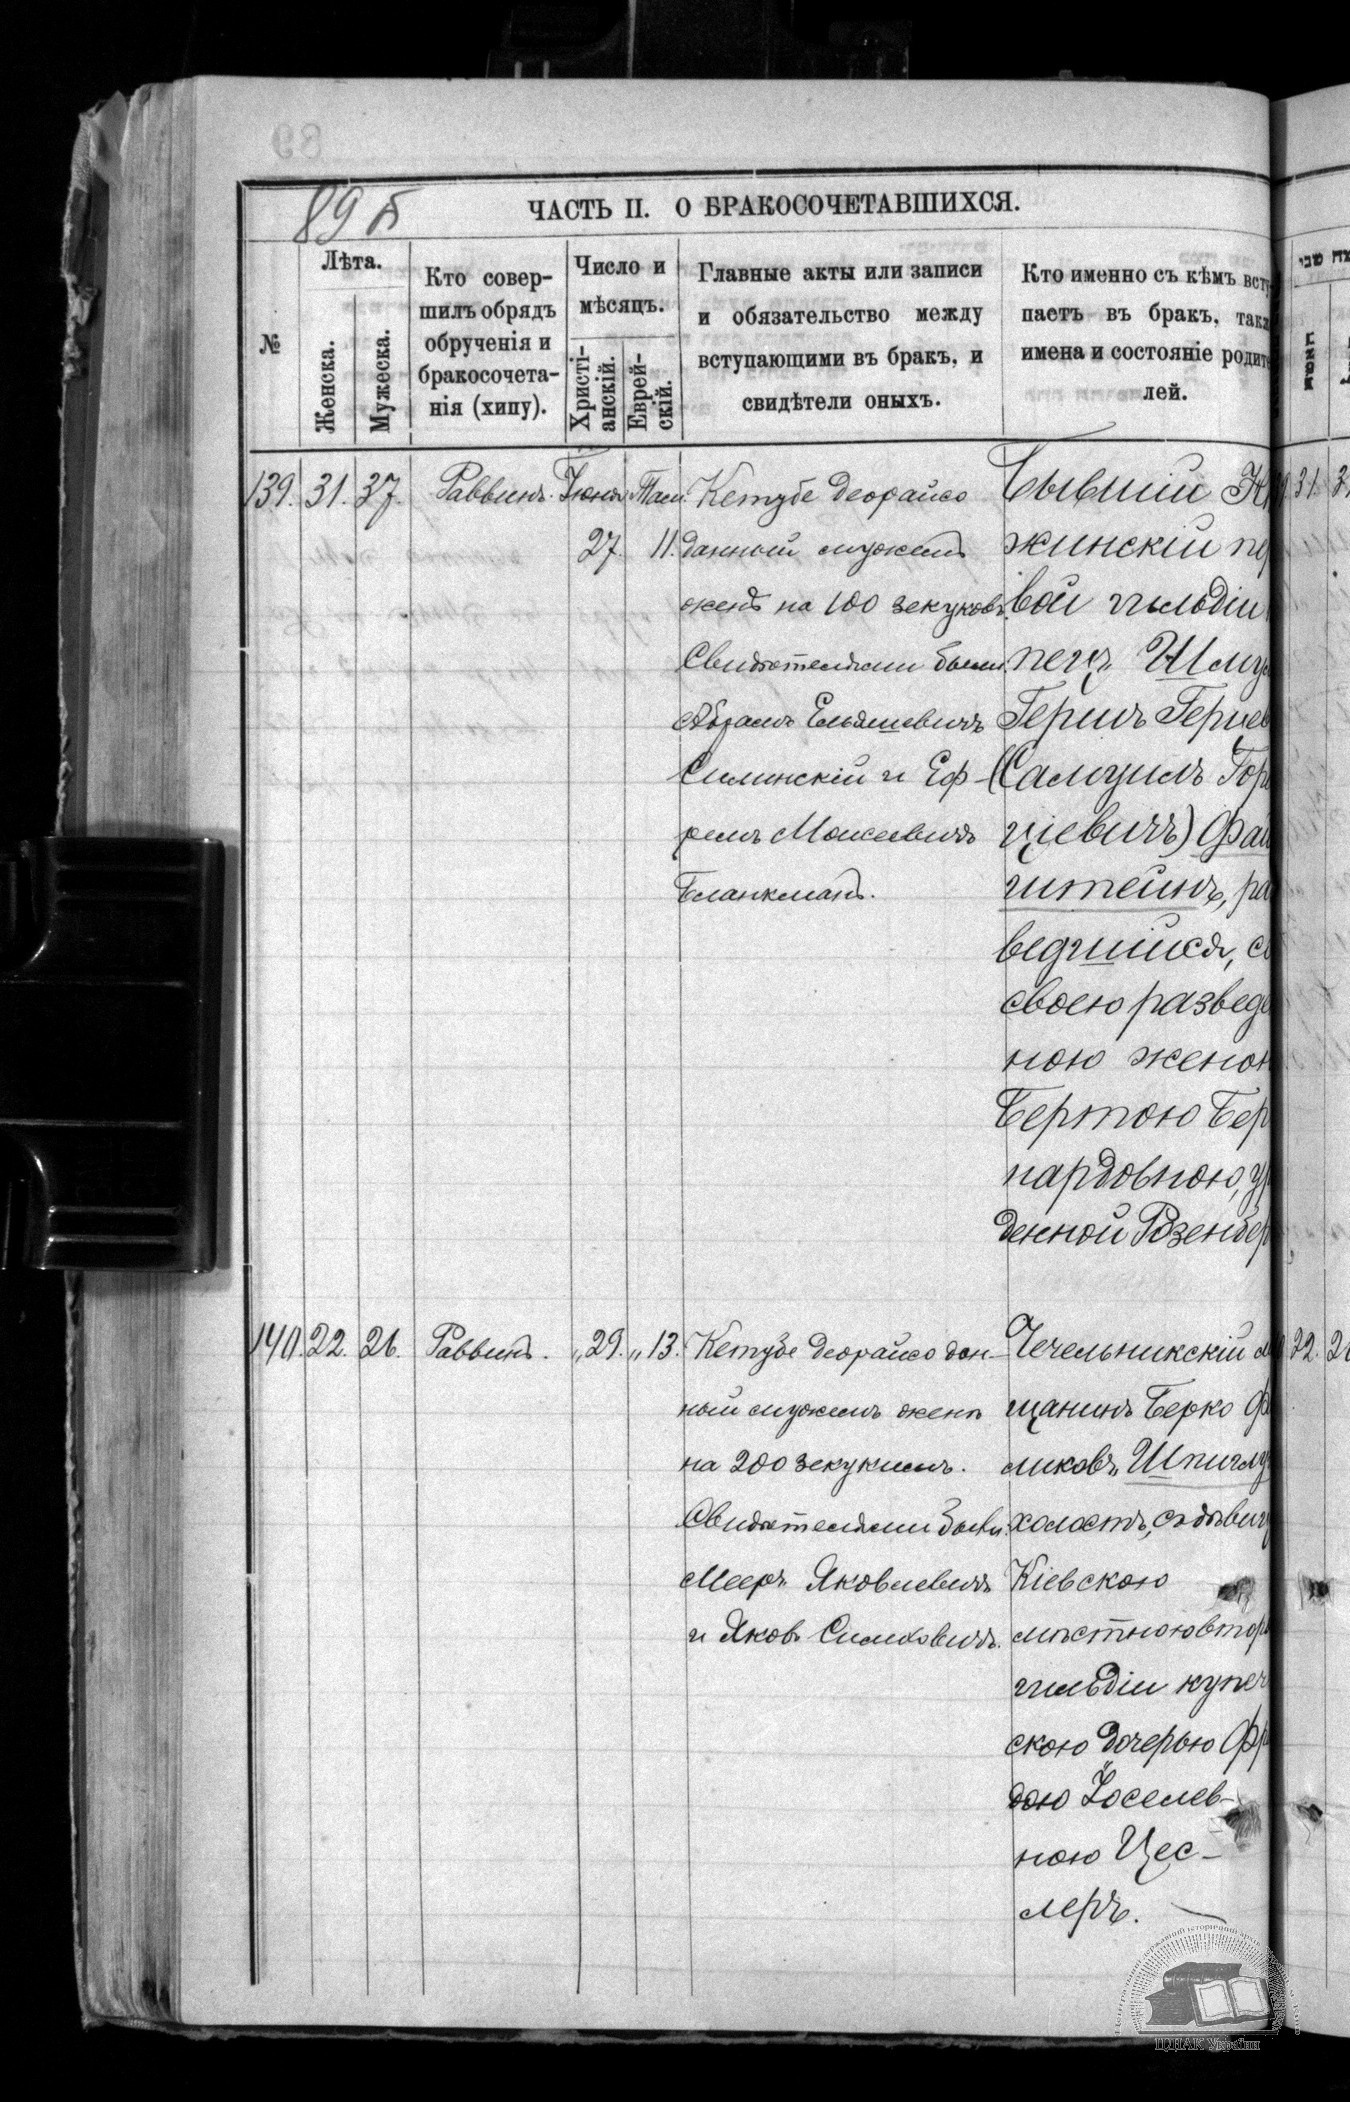 89б
ЧАСТЬ II. О БРАКОСОЧЕТАВШИХСЯ.
№
Лѣта.
Женска.
Мужеска.
Кто совер-
шилъ обрядъ
обрученія и
бракосочета-
нія (хипу).
Число и
мѣсяцъ.
Христі-
анскій.
Еврей-
скій.
Главные акты или записи
и обязательство между
вступающими въ бракъ, и
свидѣтели оныхъ.
Кто именно съ кѣмъ всту
паетъ въ бракъ, такж
имена и состояніе родите
лей.
139. 31. 37. Раввинъ. Іюня 27. Там. 11.
Кетубе деорайсо
данный мужемъ
женѣ на 100 зекуковъ.
Свидѣтелями были
Абрамъ Ельяшевичъ
Силинскій и Еф-
ремъ Моисеевичъ
Бланкманъ.
Бывшій
жинскій пер
вой гильдіи
пецъ Шму
Гершъ Герцев
(Самуилъ Гор
ціевичъ) Фай
штейнъ, ра
ведшійся, с
своею разведе
ною женою
Бертою Бер
нардовною, ур
денной Розенбер
140. 22. 26. Раввинъ. „ 29. „ 13.
Кетубе деорайсо дан-
ный мужемъ женѣ
на 200 зекукимъ.
Свидѣтелями были:
Мееръ Яковлевичъ
и Яковъ Симховичъ.
Чечельникскій м
щанинъ Берко Ф
ликовъ Шпигл
холостъ, съ дѣвиц
Кіевскою
мѣстною втор
гильдіи купеч
скою дочерью Фр
дою Іоселев-
ною Цес-
леръ.
31.
22.
ЦДІАК України